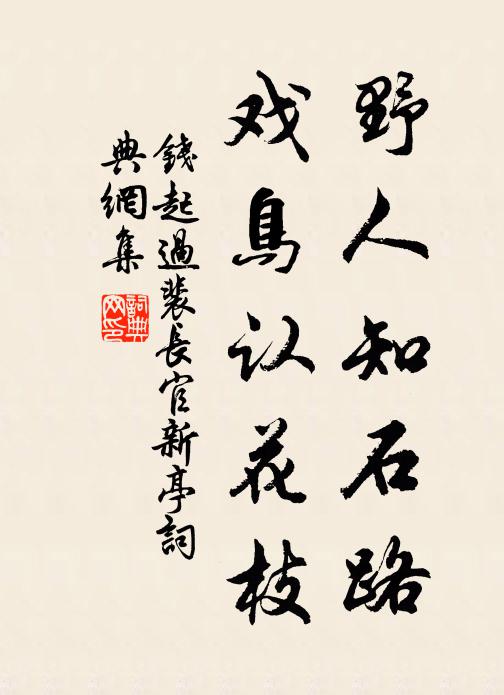 野人知石路
戏鳥认花枝
錢起過裴長官新亭詞
典網集
詞典
网印